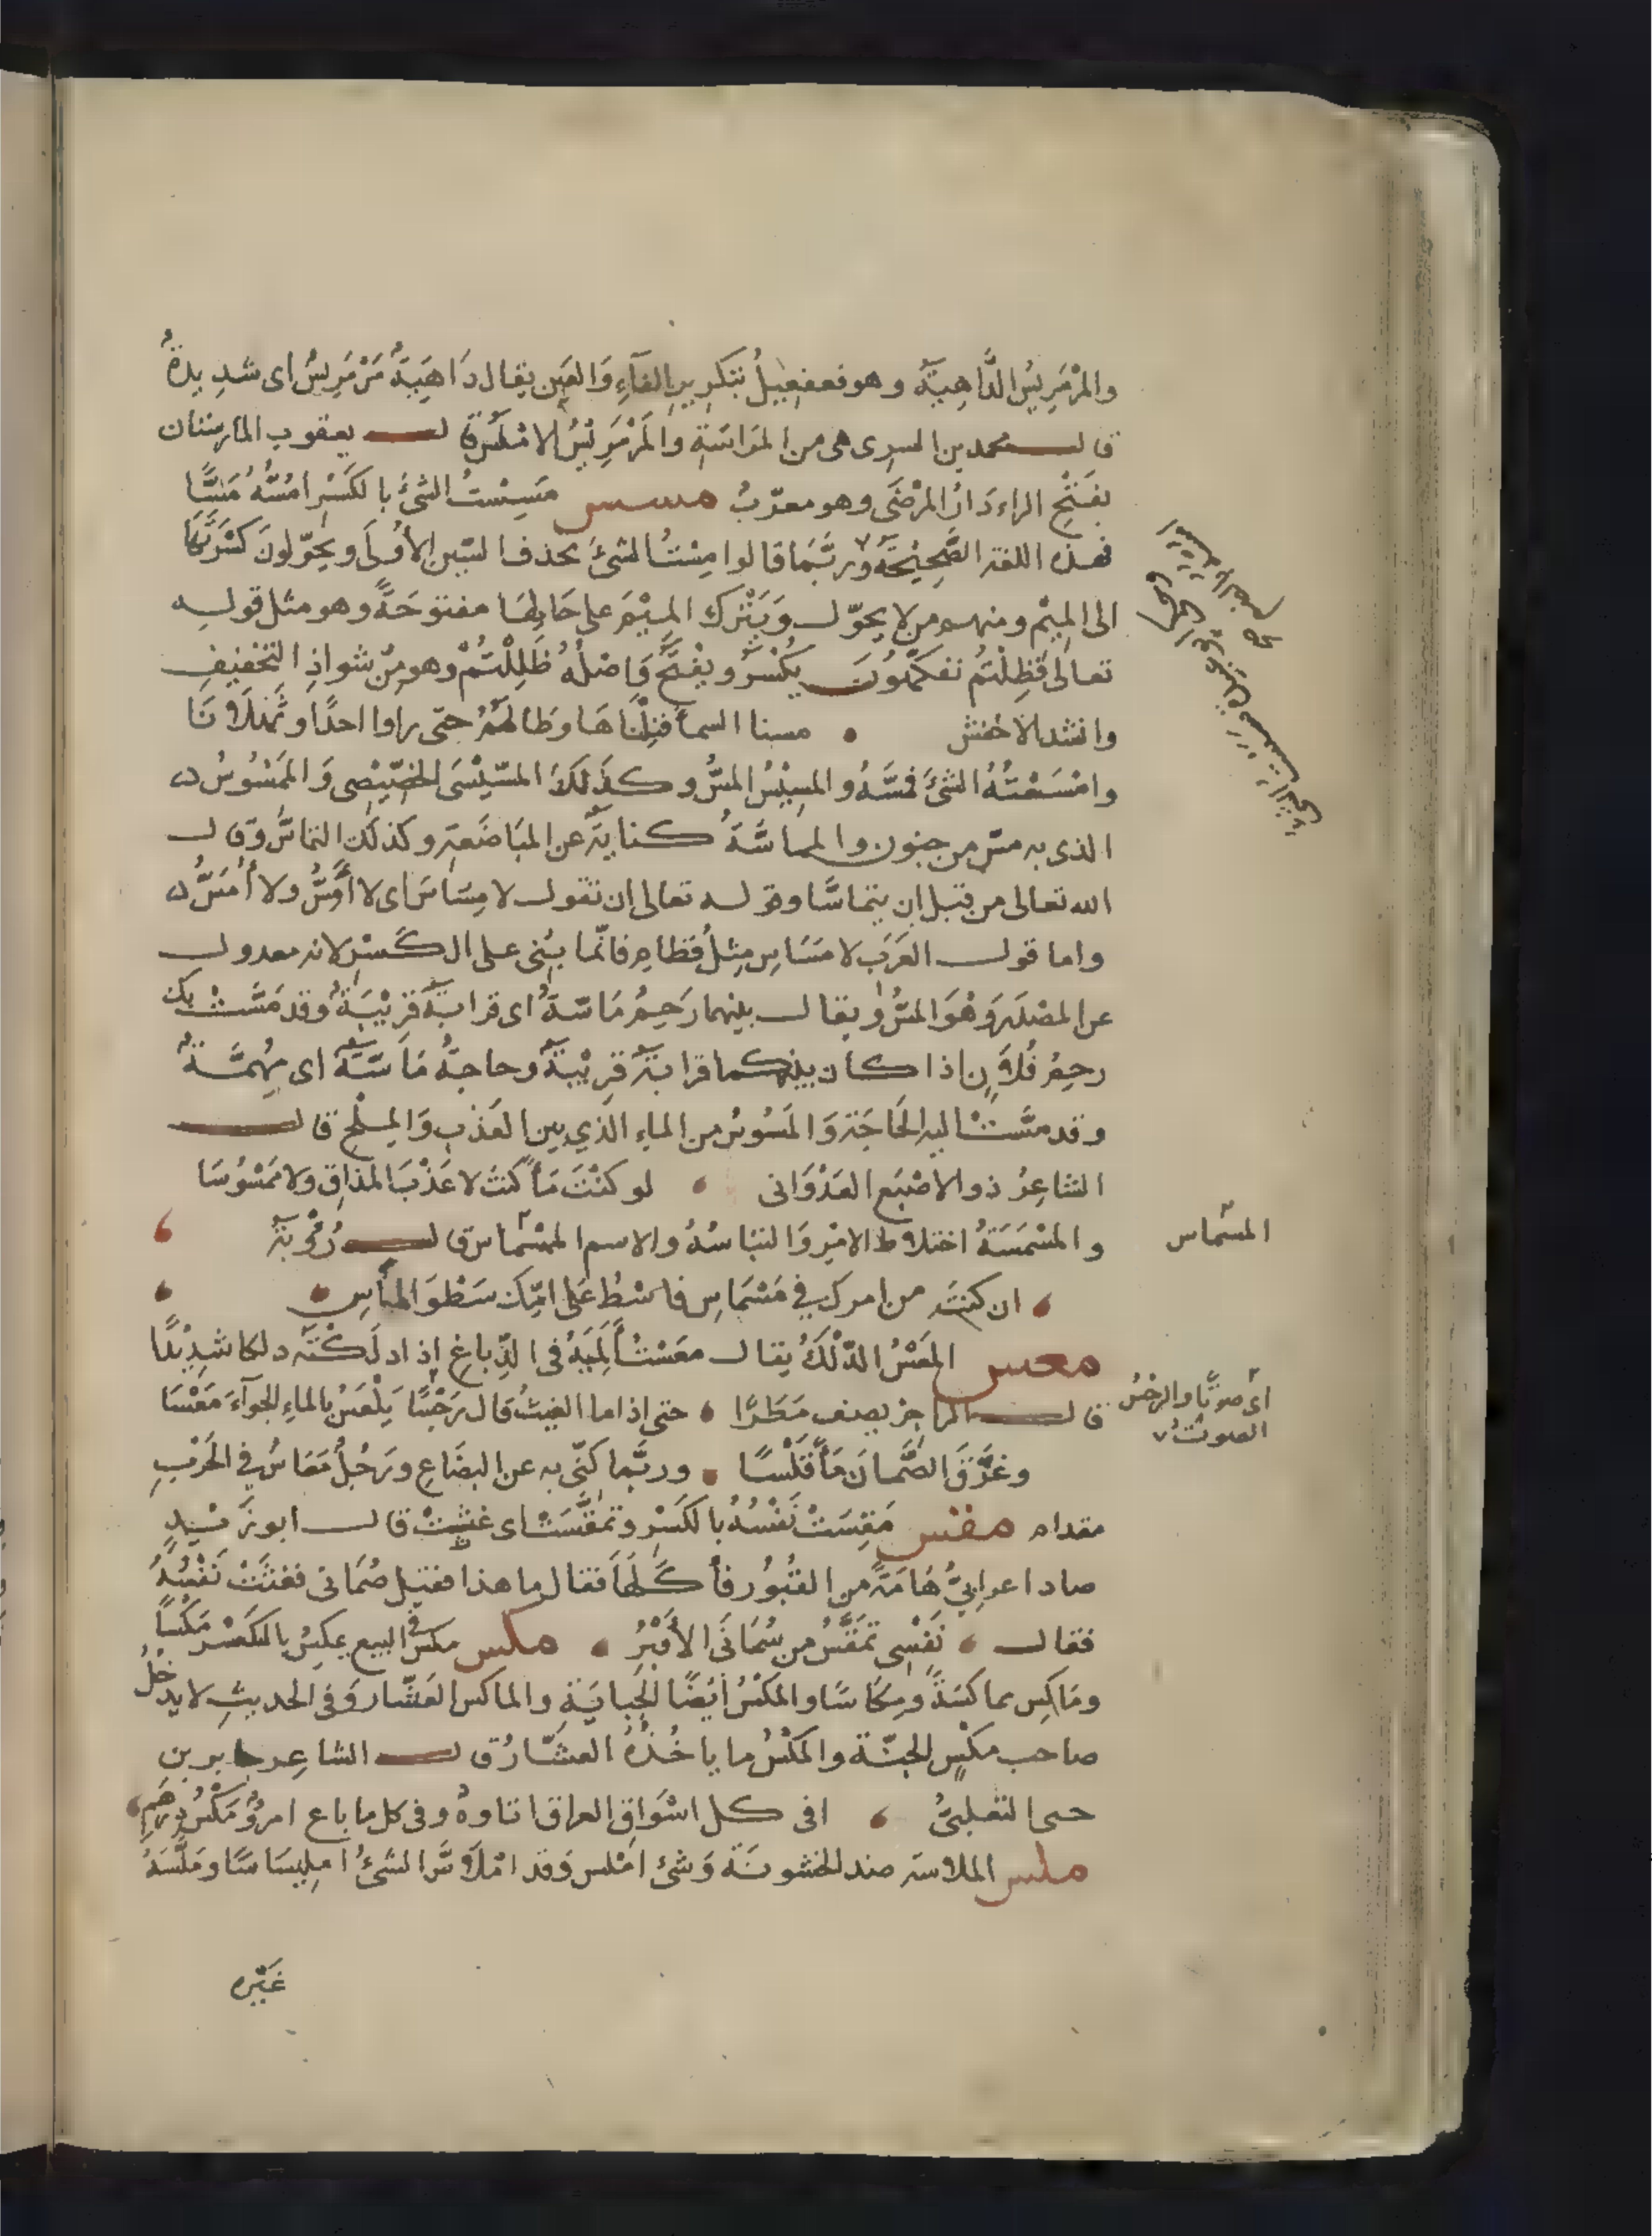 والمَرْمَرِيسُ الدَّاهِيَةُ وهو فعفعيلٌ بتكرير الفَاءِ وَالعَين يقال دَاهِيَةٌ مَرْمَرِيسٌ اى شدِيدةٌ
قال محمد بن السرى هى من المَرَاسَةِ والمَرْمَرِيسُ الامْلَسُ قال يعقوب المارستان
بفَتْحِ الراء دَارُ المَرْضَى وهو معرّبٌ مسس مَسِسْتُ الشئَ بالكَسْرِ امَسُّهُ مَسًّا
فهذه اللغة الصَّحِيْحَةُ ورُبَّمَا قالوا مِسْتُ الشئَ بحذف السّين الأُولَى ويحَوّلونَ كسْرَتَهَا
الى المِيْم ومنهم من لا يحوّل وَيَتْرك المِيْمَ على حَالِهَا مفتوحَةً وهو مثل قوله
تعالى فَظِلْتُمْ تفكّهُونَ يُكْسَرُ ويُفْتَحُ وَاصْلُهُ ظَلِلْتُمْ وهو مِنْ شواذِ التخفيفِ
وانشد الاخفش مسنا السماء فنِلْنَاهَا وطالهُمُ حتى راوا احدًا وثَهْلَانَا
وامْسَسْتُهُ الشئَ فمَسَّهُ والمسِيْسُ المسُّ وكذَلكَ المسّيْسَى الخصِّيصى وَالمَمْسُوسُ
الذى به مسّ من جنون والمماسَّةُ كنايةٌ عن المبَاضَعَةِ وكذلك التماسُّ وقال
الله تعالى من قبل ان يتماسَّا وقوله تعالى ان تقول لا مِسَاسَ اى لا أَمَسُّ ولا أُمَسُّ
واما قول العَرَب لا مَسَاسِ مِثلُ قَطَامِ فانّما بُنِى على الكَسْرِ لانه معدول
عن المصْدَرِ وَهُوَ المسُّ ويقال بينهما رَحِمٌ مَاسّةٌ اى قرابةٌ قرِيْبَةٌ وقد مَسَّتْ بك
رحِمُ فُلَانٍ اذا كان بينكما قرابةٌ قرِيْبةٌ وحاجةٌ مَاسّةٌ اى مُهِمَّةٌ
وقد مسَّتْ اليه الحَاجَة وَالمَسُوسُ من الماءِ الذي بين العَذْبِ وَالمِلْحِ قال
الشاعِرُ ذو الاصْبَع العَدْوَانى لو كنْتَ مَاءً كنتَ لا عَذْبَ المذاقِ ولا مَسُوسَا
والمَسْمَسَةُ اختلاط الامْرِ وَالتبَاسُهُ والاسم المَسْمَاس قال رُؤْبَةُ
المسْماس
ان كنتَ من امرك في مَسْمَاسِ فاسْطُ عَلى امّكَ سَطْوَ الماسِ
معس المَعْسُ الدّلْكُ يقال معَسْتُ المَنِيئَةَ فى الدِّباغ إذا دلَكْتَه دلكا شدِيْدًا
قال الراجز يصف مَطَرًا حتى إذا ما الغيثُ قال رَجْسًا يَمْعَسُ بالماءِ الجِوَاءَ مَعْسَا
اى صوتًا والرجسُ
الصوتُ
وغَرَّقَ الصَّمّانَ مَاءً قَلْسًا وربَّما كنّى به عن البضَاعِ ورَجُلٌ مَعّاسٌ في الحَرْبِ
مقدام مقس مَقِسَتْ نَفْسُهُ بالكَسْرِ وتَمَقَّسَتْ اى غثِيَتْ قال ابو زيدٍ
صاد اعرابىٌّ هَامَةً من القُبُورِ فأكَلَهَا فقال ما هذا فقيل صُمَانى فغثَتْ نَفْسُهُ
فقال نَفْسِى تَمَقَّسُ من سُمَانَى الأَقْبُرِ مكس مكسَ في البيع يمكِسُ بالكَسْر مَكْسًا
ومَاكِس مماكسَةً ومِكَاسًا والمكْسُ ايْضًا الجبايَة والماكس العَشّار وَفى الحديثِ لا يدخُلُ
صاحب مكْسٍ الجنّة والمكْسُ ما ياخُذُهُ العشّارُ قال الشاعِر جابر بن
حنى التغلبىُّ افى كل اسْوَاقِ العراق اتاوةٌ وفى كل ما باع امرُؤٌ مَكْسُ دِرْهَمِ
ملس الملاسة ضد الخشونَة وَشئ امْلس وَقد امْلَاسَّ الشَئُ امِليسَاسًا ومَلَّسَهُ
غَيْره